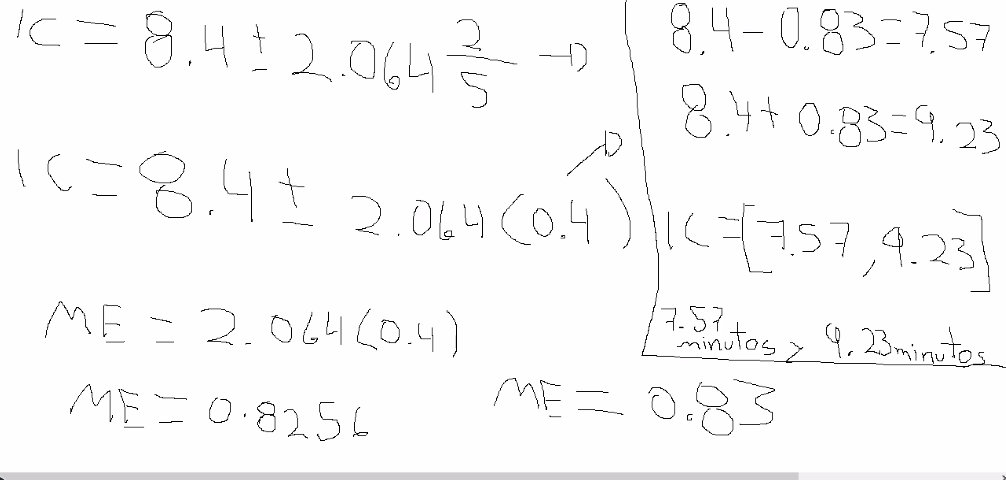 IC = 8.4 ± 2.064 2/5 →
IC = 8.4 ± 2.064 (0.4) →
ME = 2.064 (0.4)
ME = 0.8256
ME = 0.83
8.4 - 0.83 = 7.57
8.4 + 0.83 = 9.23
IC = [7.57, 9.23]
7.57 minutos y 9.23 minutos